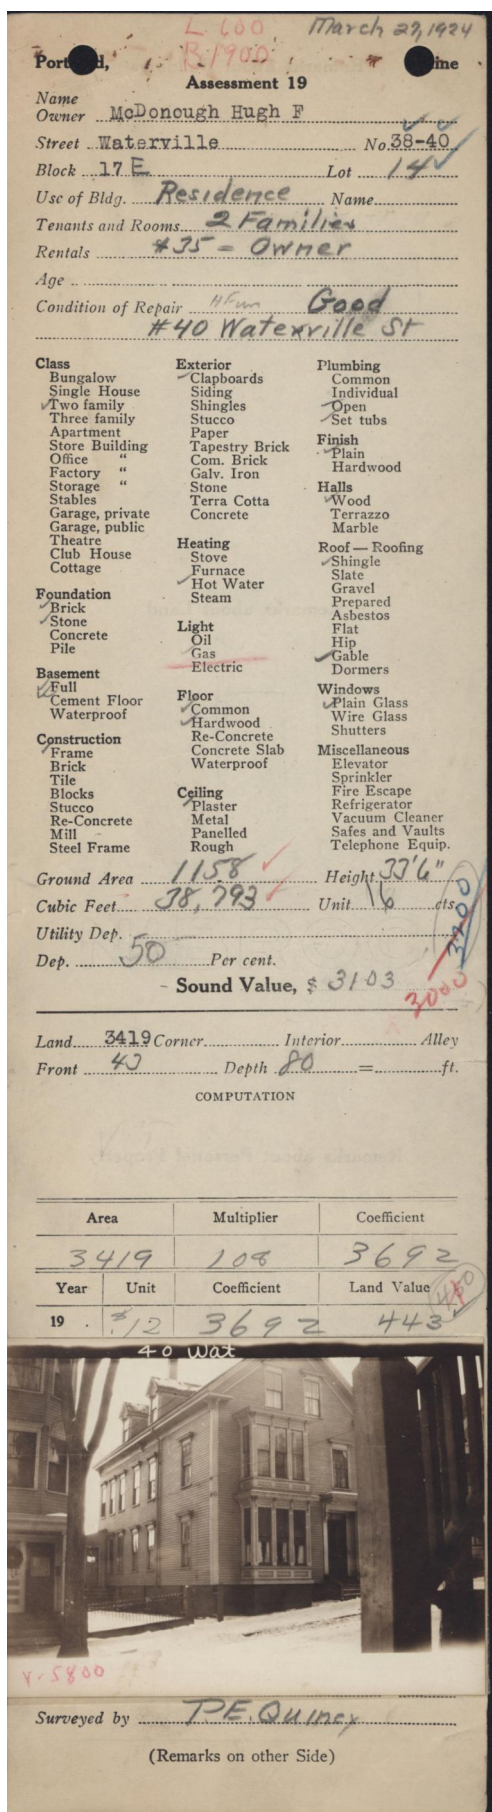 L. 600 March 27, 1924
B. 1900
Portland, Maine
Assessment 19
Name
Owner McDonough Hugh F
Street Waterville No. 38-40
Block 17 E Lot 14
Use of Bldg. Residence Name
Tenants and Rooms 2 Families
Rentals #35 = Owner
Age
Condition of Repair Good
#40 Waterville St
Class
Bungalow
Single House
Two family
Three family
Apartment
Store Building
Office "
Factory "
Storage "
Stables
Garage, private
Garage, public
Theatre
Club House
Cottage
Foundation
Brick
Stone
Concrete
Pile
Basement
Full
Cement Floor
Waterproof
Construction
Frame
Brick
Tile
Blocks
Stucco
Re-Concrete
Mill
Steel Frame
Exterior
Clapboards
Siding
Shingles
Stucco
Paper
Tapestry Brick
Com. Brick
Galv. Iron
Stone
Terra Cotta
Concrete
Heating
Stove
Furnace
Hot Water
Steam
Light
Oil
Gas
Electric
Floor
Common
Hardwood
Re-Concrete
Concrete Slab
Waterproof
Ceiling
Plaster
Metal
Panelled
Rough
Plumbing
Common
Individual
Open
Set tubs
Finish
Plain
Hardwood
Halls
Wood
Terrazzo
Marble
Roof — Roofing
Shingle
Slate
Gravel
Prepared
Asbestos
Flat
Hip
Gable
Dormers
Windows
Plain Glass
Wire Glass
Shutters
Miscellaneous
Elevator
Sprinkler
Fire Escape
Refrigerator
Vacuum Cleaner
Safes and Vaults
Telephone Equip.
Ground Area 1158 Height 33'6"
Cubic Feet 38,793 Unit 16 cts.
Utility Dep. 3200
Dep. 50 Per cent.
Sound Value, $ 3103 3000
Land 3419 Corner Interior Alley
Front 43 Depth 80 = ft.
COMPUTATION
Area Multiplier Coefficient
3419 108 3692
Year Unit Coefficient Land Value
19 . $.12 3692 443
40 Wat
V-5800
Surveyed by P.E. Quincy
(Remarks on other Side)